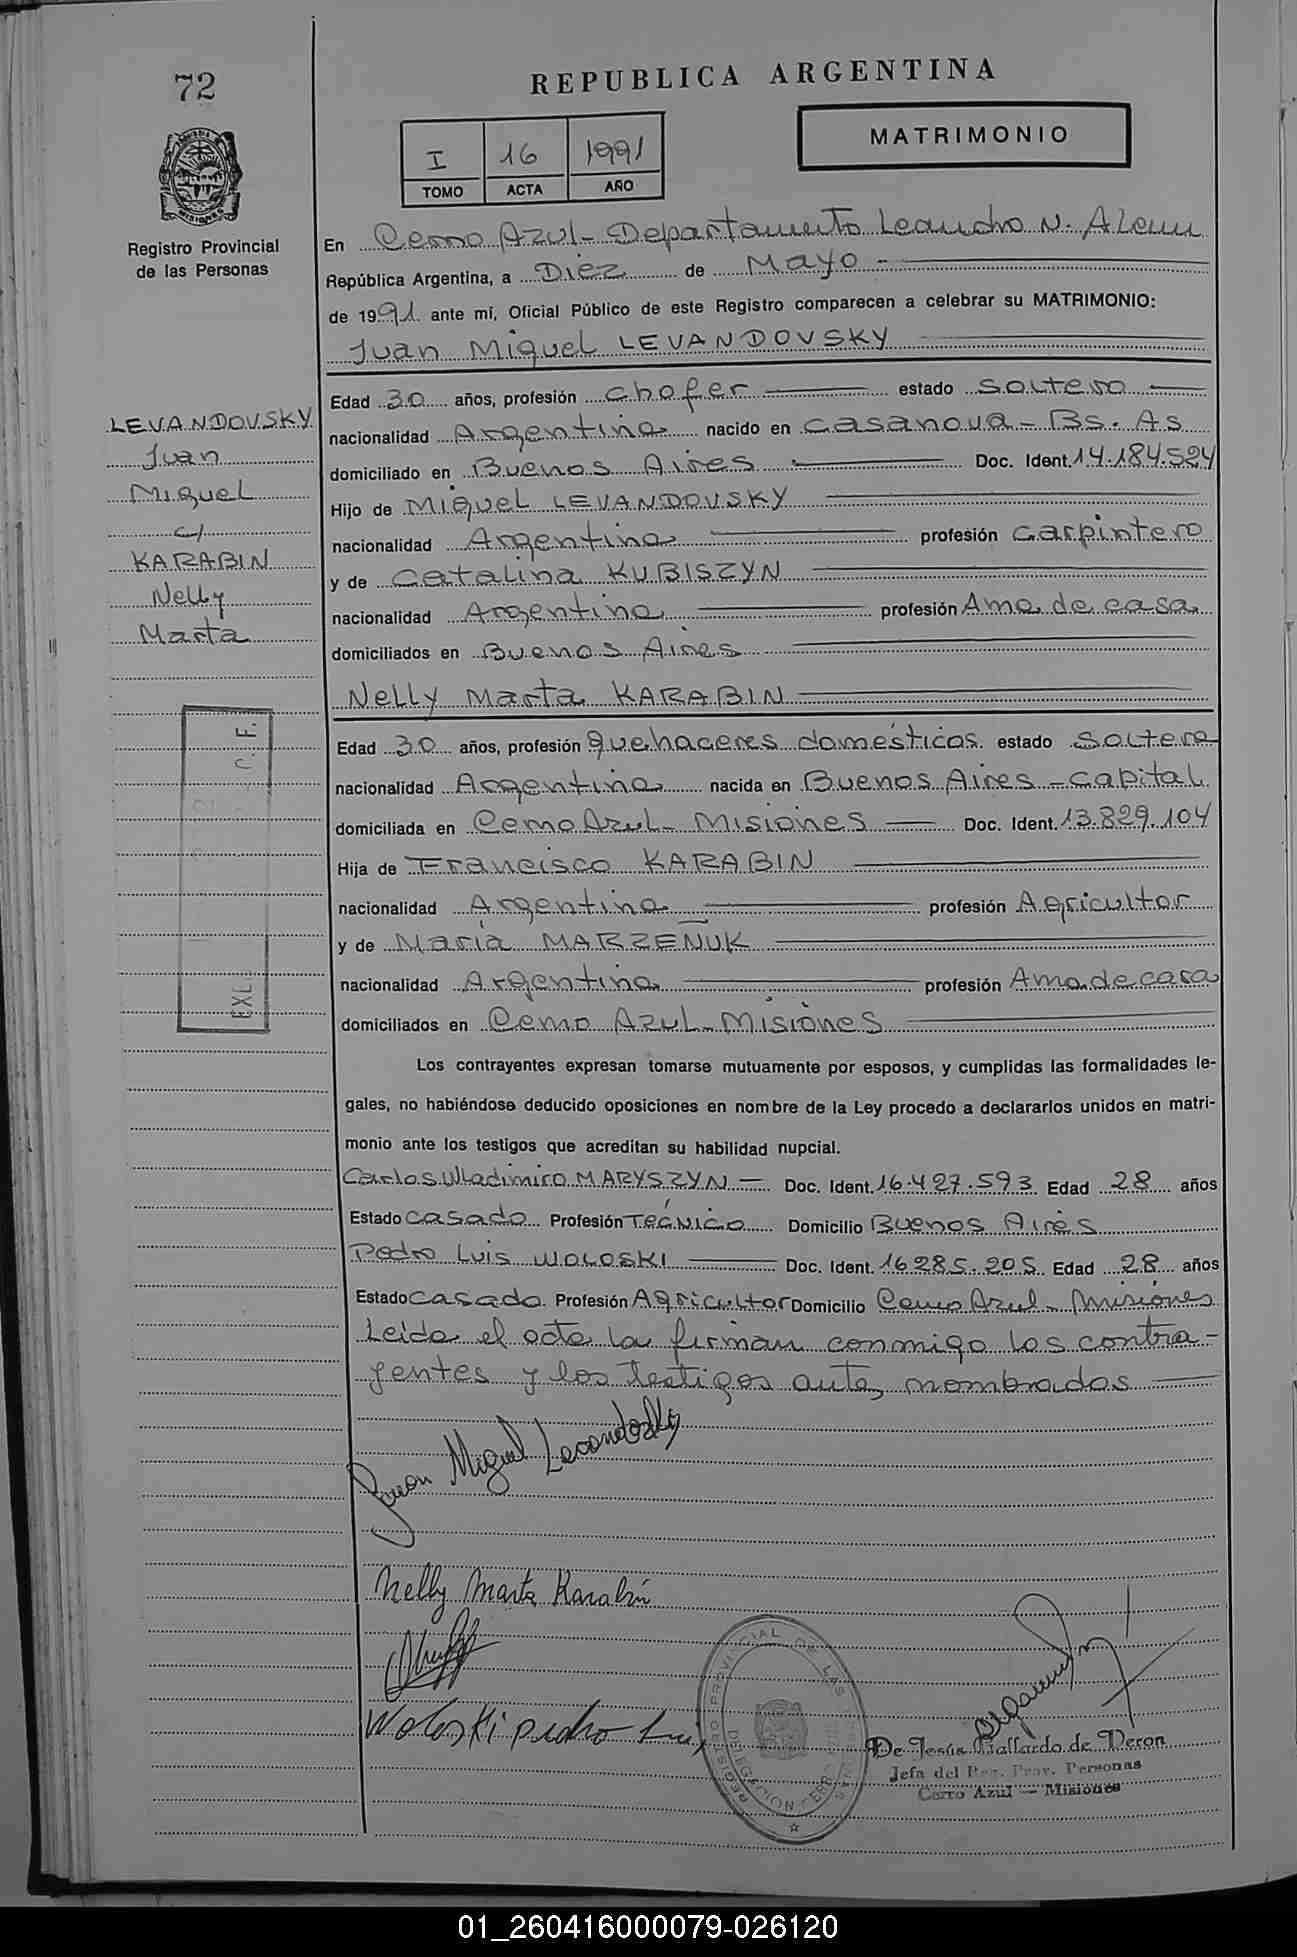 72
REPUBLICA ARGENTINA
MATRIMONIO
I 16 1991
TOMO ACTA AÑO
Registro Provincial
de las Personas
En Cerro Azul - Departamento Leandro N. Alem
República Argentina, a Diez de Mayo
de 1991 ante mí, Oficial Público de este Registro comparecen a celebrar su MATRIMONIO:
Juan Miguel LEVANDOVSKY
LEVANDOVSKY
Juan
Miguel
c/
KARABIN
Nelly
Marta
Edad 30 años, profesión chofer estado soltero
nacionalidad Argentina nacido en Casanova - Bs. As
domiciliado en Buenos Aires Doc. Ident. 14.184.524
Hijo de Miguel LEVANDOVSKY
nacionalidad Argentina profesión carpintero
y de Catalina KUBISZYN
nacionalidad Argentina profesión Ama de casa
domiciliados en Buenos Aires
Nelly Marta KARABIN
Edad 30 años, profesión quehaceres domésticos estado soltera
nacionalidad Argentina nacida en Buenos Aires - Capital
domiciliada en Cerro Azul - Misiones Doc. Ident. 13.829.104
Hija de Francisco KARABIN
nacionalidad Argentina profesión Agricultor
y de María MARZEÑUK
nacionalidad Argentina profesión Ama de casa
domiciliados en Cerro Azul - Misiones
C. F.
EXE
Los contrayentes expresan tomarse mutuamente por esposos, y cumplidas las formalidades le-
gales, no habiéndose deducido oposiciones en nombre de la Ley procedo a declararlos unidos en matri-
monio ante los testigos que acreditan su habilidad nupcial.
Carlos Wladimiro MARYSZYN - Doc. Ident. 16.427.593 Edad 28 años
Estado casado Profesión Técnico Domicilio Buenos Aires
Pedro Luis WOLOSKI Doc. Ident. 16.285.205 Edad 28 años
Estado casado Profesión Agricultor Domicilio Cerro Azul - Misiones
Leida el acta la firman conmigo los contra-
yentes y los testigos antes nombrados
Juan Miguel Levandovsky
Nelly Marta Karabin
Woloski pedro Lui
REGISTRO PROVINCIAL DE LAS
DELEGACION CERRO
De Jesús Gallardo de Deron
Jefa del Reg. Prov. Personas
Cerro Azul - Misiones
01_260416000079-026120